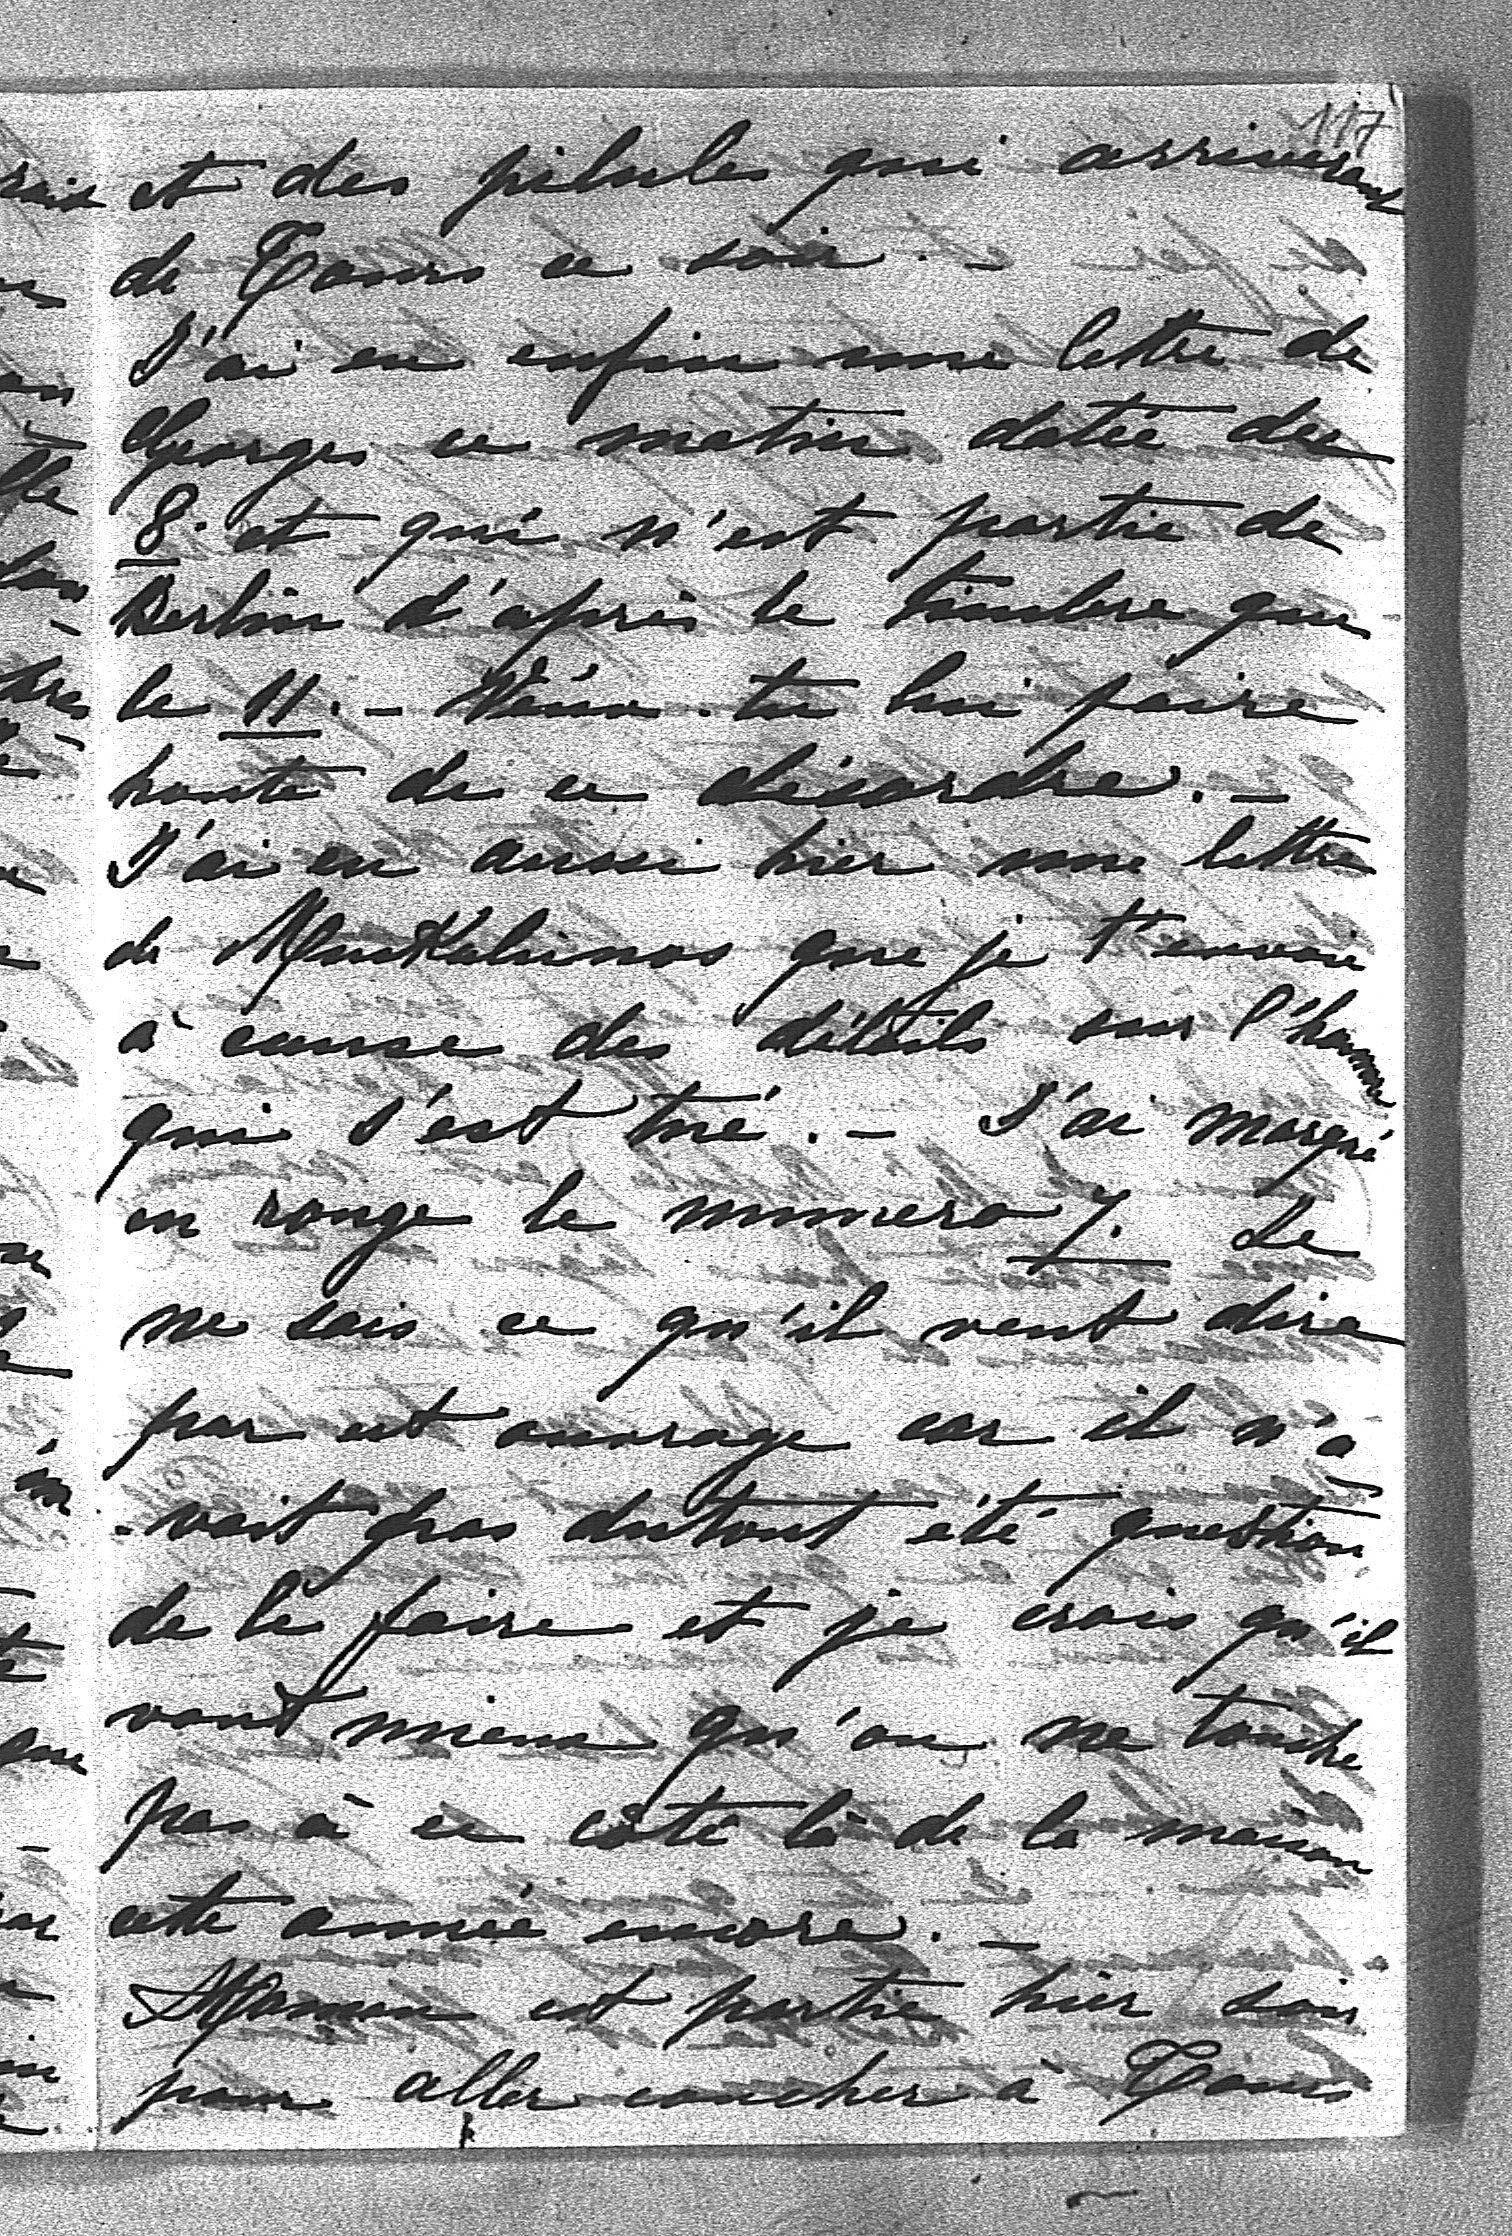 117
et des pilules qui arriveront
de Tours ce soir. -
J'ai eu enfin une lettre de
Georges ce matin datée du
8. et qui n'est partie de
Berlin d'après le timbre que
le 11. - tu lui faire
honte de ce désordre. -
J'ai eu aussi hier une lettre
de que je t'envoie
à cause des détails sur l'homme
qui s'est tué. - J'ai marqué
en rouge le numero 7. Je
ne sais ce qu'il veut dire
par cet ouvrage car il n'a-
-vait pas dutout été question
de le faire et je crois qu'il
vaut mieux qu'on ne touche
pas à ce côté là de la maison
cette année encore. -
Maman est partie hier soir
pour aller coucher à Tours